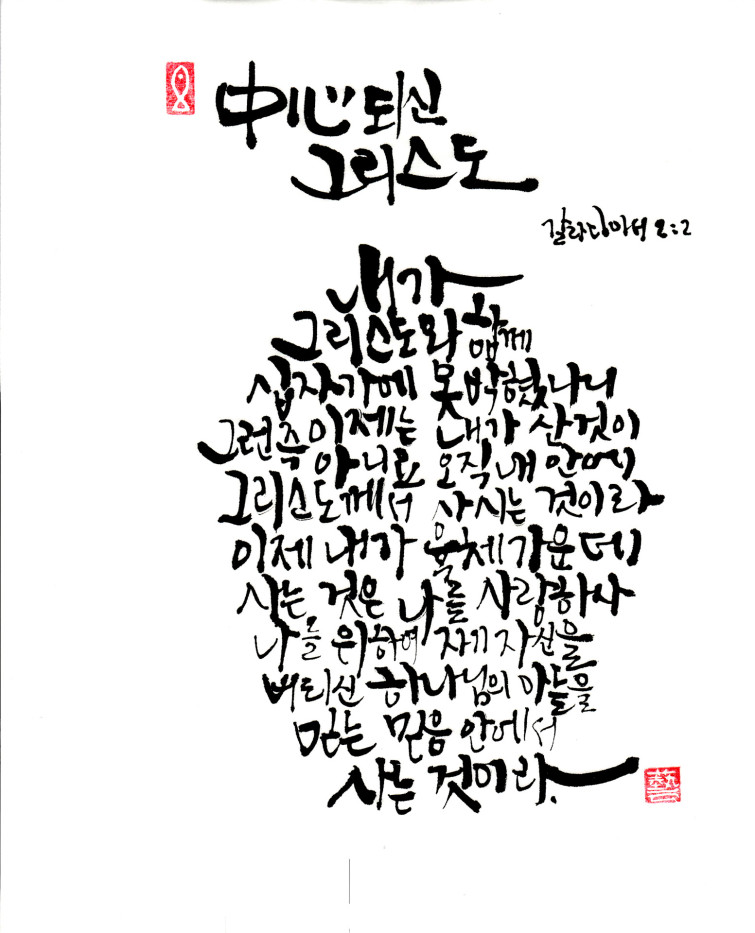 中心 되신
그리스도
갈라디아서 2:2
내가
그리스도와 함께
십자가에 못박혔나니
그런즉 이제는 내가 산것이
아니요 오직 내 안에
그리스도께서 사시는 것이라
이제 내가 육체 가운데
사는 것은 나를 사랑하사
나를 위하여 자기 자신을
버리신 하나님의 아들을
믿는 믿음 안에서
사는 것이라.
藝